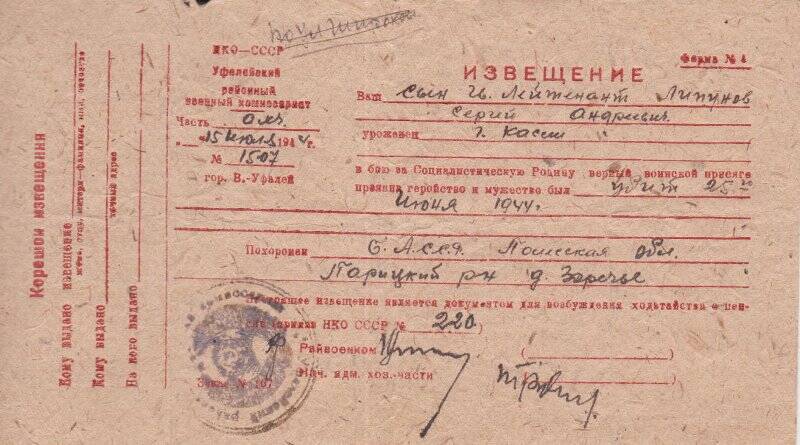 НКО–СССР
Уфалейский
районный
военный комиссариат
Часть
„15 Июля 1944 г.
№ 1507
гор. В.-Уфалей
Форма № 4
ИЗВЕЩЕНИЕ
Ваш сын Гв. Лейтенант Липунов
Сергй Андреевич
уроженец г. Касли
в бою за Социалистическую Родину верный воинской присяге
проявив геройство и мужество был убит 25-го
Июня 1944г.
Похоронен Б.А.ССР. Полесская обл.
Парицкий рн д. Заречье
Настоящее извещение является документом для возбуждения ходатайства о пен-
сии (приказ НКО СССР № 220)
Райвоенком
Нач. адм. хоз.-части
Заказ № 107
Корешок извещения
Кому выдано извещение
жена, отцу, матери—фамилия, имя, отчество
Кому выдано
точный адрес
На кого выдано